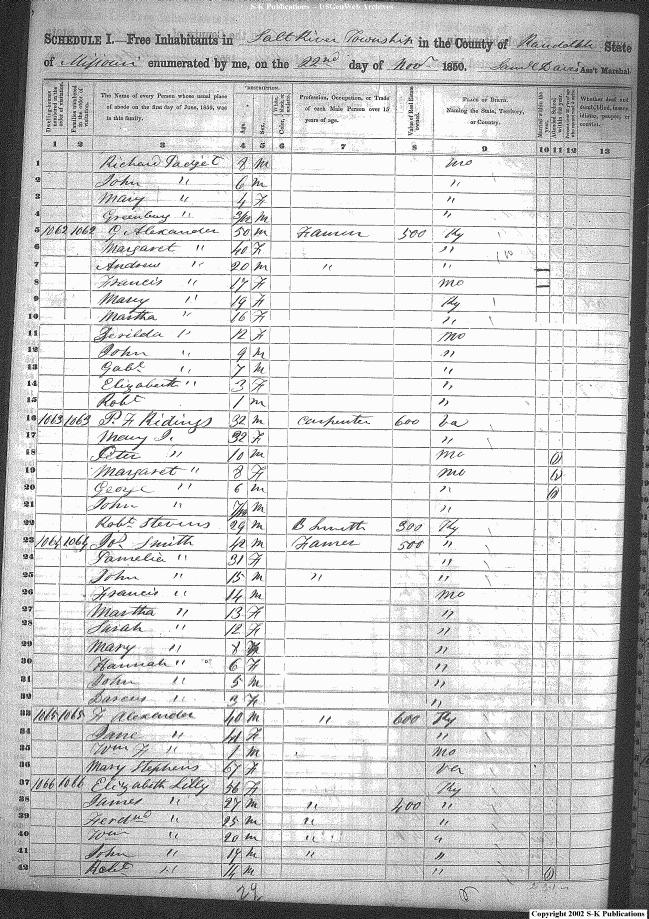 S-K Publications - USGenWeb Archives
SCHEDULE I.—Free Inhabitants in Salt River Township in the County of Randolph State
of Missouri enumerated by me, on the 22nd day of Novr 1850. Ass't Marshal.
Dwelling-houses numbered in the order of visitation.
Families numbered in the order of visitation.
The Name of every Person whose usual place of abode on the first day of June, 1850, was in this family.
DESCRIPTION.
Age
Sex.
Color, White, black, or mulatto.
Profession, Occupation, or Trade of each Male Person over 15 years of age.
Value of Real Estate owned.
PLACE OF BIRTH. Naming the State, Territory, or Country.
Married within the year.
Whether deaf and dumb, blind, insane, idiotic, pauper, or convict.
1 2 3 4 5 6 7 8 9 10 11 12 13
1 Richard Padget 8 m mo
2 John " 6 m "
3 Mary " 4 F "
4 Greenbury " m "
5 1062 1062 G Alexander 50 m Farmer 500 Ky
6 Margaret " 40 F "
7 Andrew " 20 m " "
8 Francis " 17 F mo
9 Mary " 19 F Ky
10 Martha " 16 F "
11 " 12 F mo
12 John " 9 m "
13 Gabl " 7 m "
14 Elizabeth " 3 F "
15 Robt 1 m "
16 1063 1063 P. F Ridings 32 m Carpenter 600 Va
17 Mary J. 32 F "
18 Peter " 10 m Mo (1)
19 Margaret " 8 F mo (1)
20 George " 6 m " (1)
21 John " m "
22 Robt Stevens 29 m B Smith 300 Ky
23 1064 1064 Jos Smith 42 m Farmer 500 "
24 Pamelia " 31 F "
25 John " 15 m " "
26 Francis " 14 m mo
27 Martha " 13 F "
28 Sarah " 12 F "
29 Mary " 8 "
30 Hannah " 6 F "
31 John " 5 m "
32 Darcus " 3 F "
33 1065 1065 F Alexander 40 m " 600 Ky
34 Jane " F "
35 Wm F " 1 m mo
36 Mary Stephens 67 F Va
37 1066 1066 Elizabeth Lilly 56 F Ky
38 James " 27 m " 400 "
39 Ferdnd " 25 m " "
40 Wm " 20 m " "
41 John " 17 m " "
42 Robt " 14 m " (1)
Copyright 2002 S-K Publications